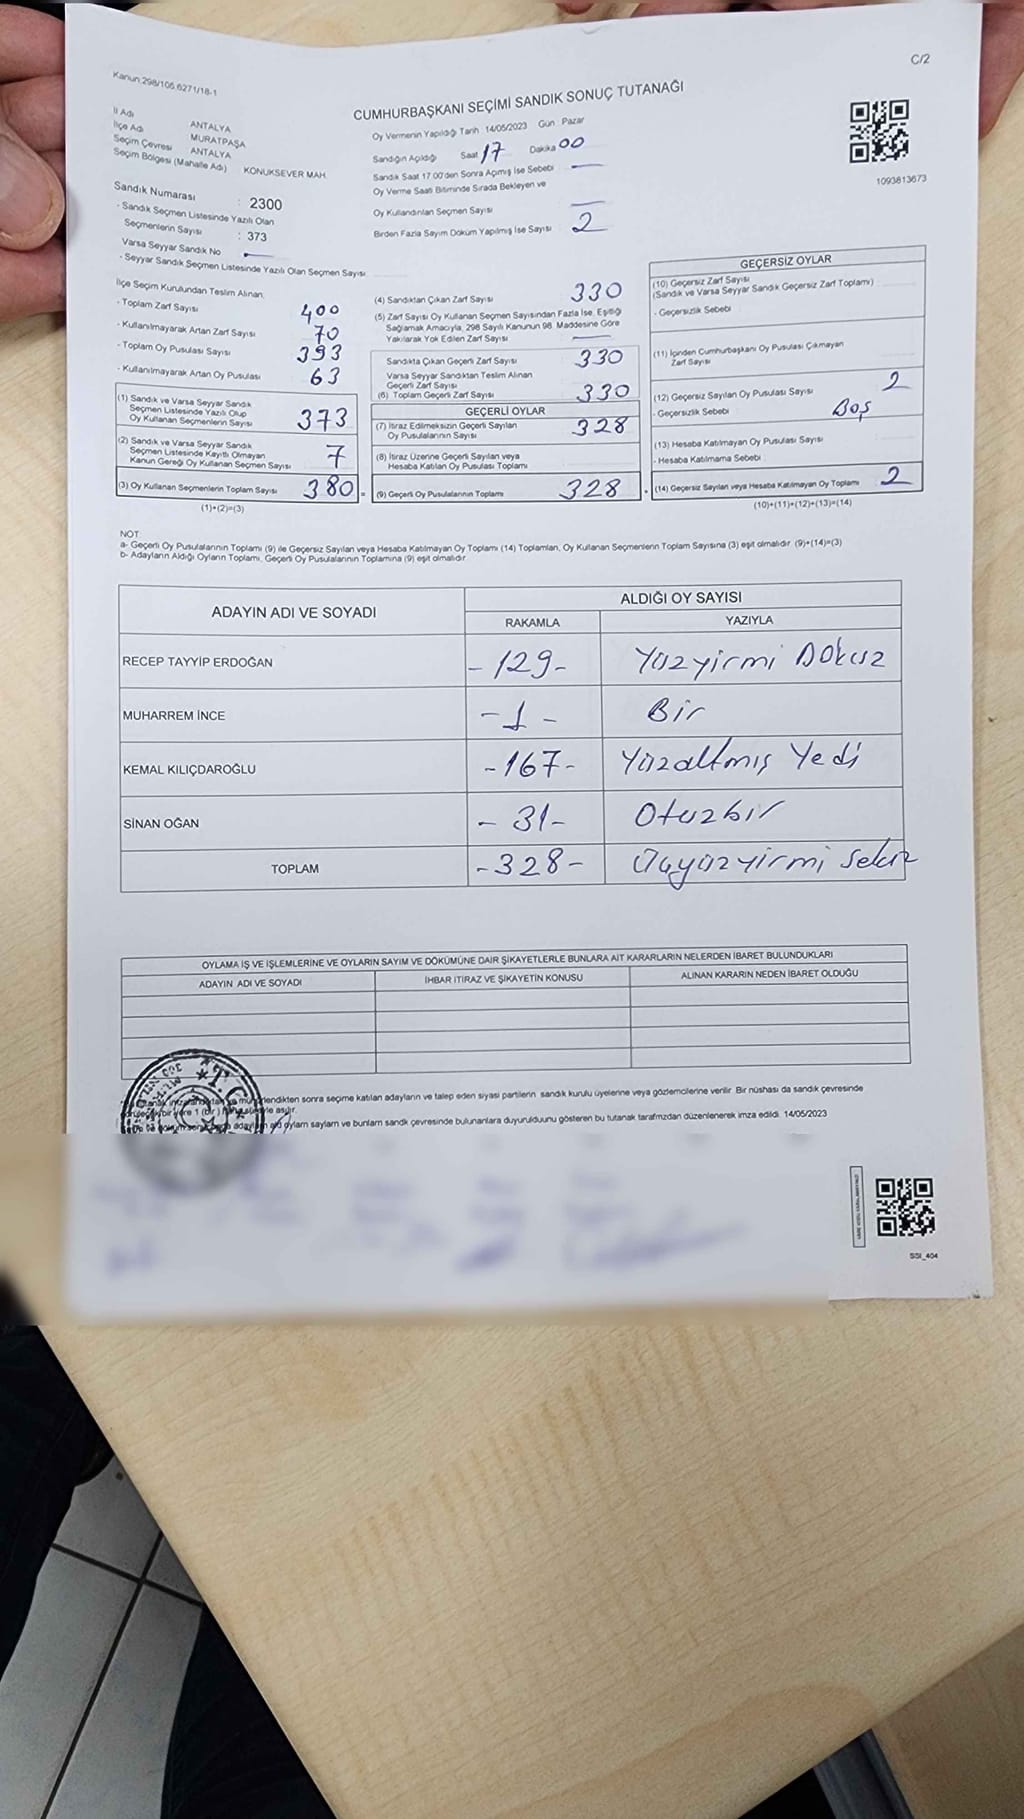 C/2
Kanun 298/106.6271/18-1
CUMHURBAŞKANI SEÇİMİ SANDIK SONUÇ TUTANAĞI
İl Adı ANTALYA
İlçe Adı MURATPAŞA
Seçim Çevresi ANTALYA
Seçim Bölgesi (Mahalle Adı) KONUKSEVER MAH.
Sandık Numarası : 2300
- Sandık Seçmen Listesinde Yazılı Olan
Seçmenlerin Sayısı : 373
Varsa Seyyar Sandık No —
- Seyyar Sandık Seçmen Listesinde Yazılı Olan Seçmen Sayısı
Oy Vermenin Yapıldığı Tarih 14/05/2023 Gün Pazar
Sandığın Açıldığı Saat 17 Dakika 00
Sandık Saat 17.00'den Sonra Açılmış İse Sebebi —
Oy Verme Saati Bitiminde Sırada Bekleyen ve
Oy Kullandırılan Seçmen Sayısı —
Birden Fazla Sayım Döküm Yapılmış İse Sayısı 2
1093813673
İlçe Seçim Kurulundan Teslim Alınan:
- Toplam Zarf Sayısı 400
- Kullanılmayarak Artan Zarf Sayısı 70
- Toplam Oy Pusulası Sayısı 393
- Kullanılmayarak Artan Oy Pusulası 63
(1) Sandık ve Varsa Seyyar Sandık
Seçmen Listesinde Yazılı Olup
Oy Kullanan Seçmenlerin Sayısı 373
(2) Sandık ve Varsa Seyyar Sandık
Seçmen Listesinde Kayıtlı Olmayan
Kanun Gereği Oy Kullanan Seçmen Sayısı 7
(3) Oy Kullanan Seçmenlerin Toplam Sayısı 380 =
(1)+(2)=(3)
(4) Sandıktan Çıkan Zarf Sayısı 330
(5) Zarf Sayısı Oy Kullanan Seçmen Sayısından Fazla İse, Eşitliği
Sağlamak Amacıyla, 298 Sayılı Kanunun 98. Maddesine Göre
Yakılarak Yok Edilen Zarf Sayısı —
Sandıkta Çıkan Geçerli Zarf Sayısı 330
Varsa Seyyar Sandıktan Teslim Alınan
Geçerli Zarf Sayısı
(6) Toplam Geçerli Zarf Sayısı 330
GEÇERLİ OYLAR
(7) İtiraz Edilmeksizin Geçerli Sayılan
Oy Pusulalarının Sayısı 328
(8) İtiraz Üzerine Geçerli Sayılan veya
Hesaba Katılan Oy Pusulası Toplamı
(9) Geçerli Oy Pusulalarının Toplamı 328 +
GEÇERSİZ OYLAR
(10) Geçersiz Zarf Sayısı
(Sandık ve Varsa Seyyar Sandık Geçersiz Zarf Toplamı)
- Geçersizlik Sebebi
(11) İçinden Cumhurbaşkanı Oy Pusulası Çıkmayan
Zarf Sayısı
(12) Geçersiz Sayılan Oy Pusulası Sayısı 2
- Geçersizlik Sebebi Boş
(13) Hesaba Katılmayan Oy Pusulası Sayısı
- Hesaba Katılmama Sebebi
(14) Geçersiz Sayılan veya Hesaba Katılmayan Oy Toplamı 2
(10)+(11)+(12)+(13)=(14)
NOT
a- Geçerli Oy Pusulalarının Toplamı (9) ile Geçersiz Sayılan veya Hesaba Katılmayan Oy Toplamı (14) Toplamları, Oy Kullanan Seçmenlerin Toplam Sayısına (3) eşit olmalıdır. (9)+(14)=(3)
b- Adayların Aldığı Oyların Toplamı, Geçerli Oy Pusulalarının Toplamına (9) eşit olmalıdır.
ADAYIN ADI VE SOYADI ALDIĞI OY SAYISI
RAKAMLA YAZIYLA
RECEP TAYYİP ERDOĞAN -129- Yüzyirmi Dokuz
MUHARREM İNCE -1- Bir
KEMAL KILIÇDAROĞLU -167- Yüzaltmış Yedi
SİNAN OĞAN -31- Otuzbir
TOPLAM -328- Üçyüzyirmi sekiz
OYLAMA İŞ VE İŞLEMLERİNE VE OYLARIN SAYIM VE DÖKÜMÜNE DAİR ŞİKAYETLERLE BUNLARA AİT KARARLARIN NELERDEN İBARET BULUNDUKLARI
ADAYIN ADI VE SOYADI İHBAR İTİRAZ VE ŞİKAYETİN KONUSU ALINAN KARARIN NEDEN İBARET OLDUĞU
T.C.
sonra seçime katılan adayların ve talep eden siyasi partilerin sandık kurulu üyelerine veya gözlemcilerine verilir. Bir nüshası da sandık çevresinde
asılır.
oyların sayları ve bunların sandık çevresinde bulunanlara duyurulduunu gösteren bu tutanak tarafımızdan düzenlenerek imza edildi. 14/05/2023
SSI_404